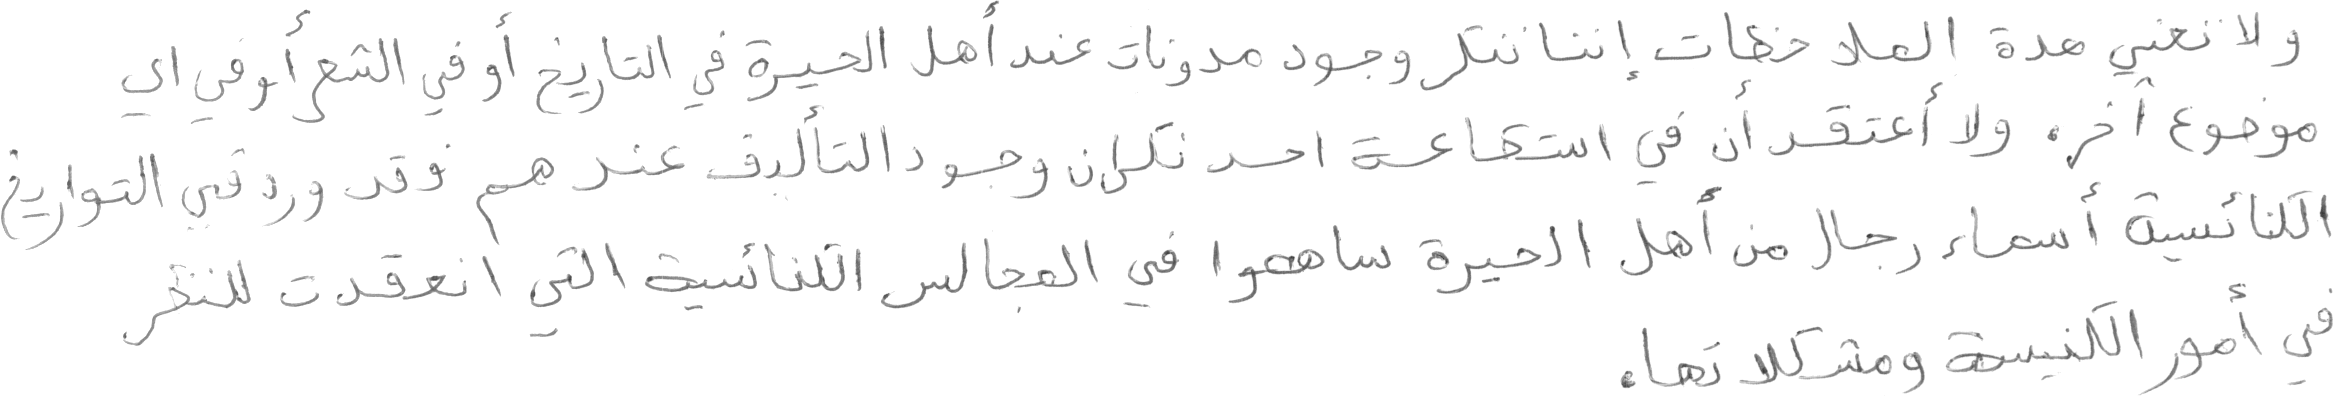 ولا تغني هدة الملاحظات إننا ننكر وجود مدونات عند أهل الحيرة في التاريخ أو في الشعر أو في اي
موضوع آخر. ولا أعتقد أن في استطاعة احد نكران وجود التأليف عندهم فوقد ورد في التواريخ
الكنائسية أسماء رجال من أهل الحيرة ساهموا في المجالس الكنائسية التي انعقدت للنظر
في أمور الكنيسة ومشكلاتها.